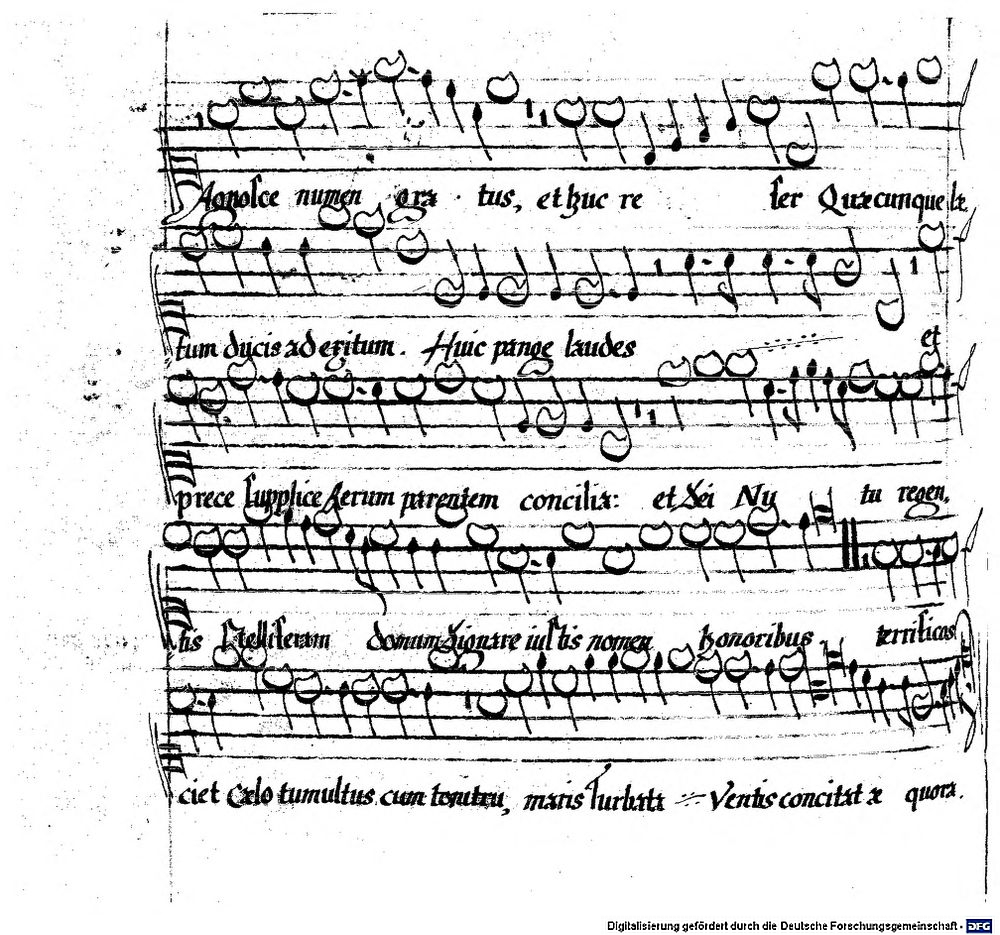 Agnosce numen ora tus, et huc re fer Quæcunque læ
tum ducis ad exitum. Huic pange laudes et
prece supplice Rerum parentem concilia: et Dei Nu tu regen,
tis stelliferam domum Dignare iustis nomen honoribus. terrificos
ciet Cælo tumultus cum tonitru, maris Turbata Ventis concitat æ quora.
Digitalisierung gefördert durch die Deutsche Forschungsgemeinschaft - DFG